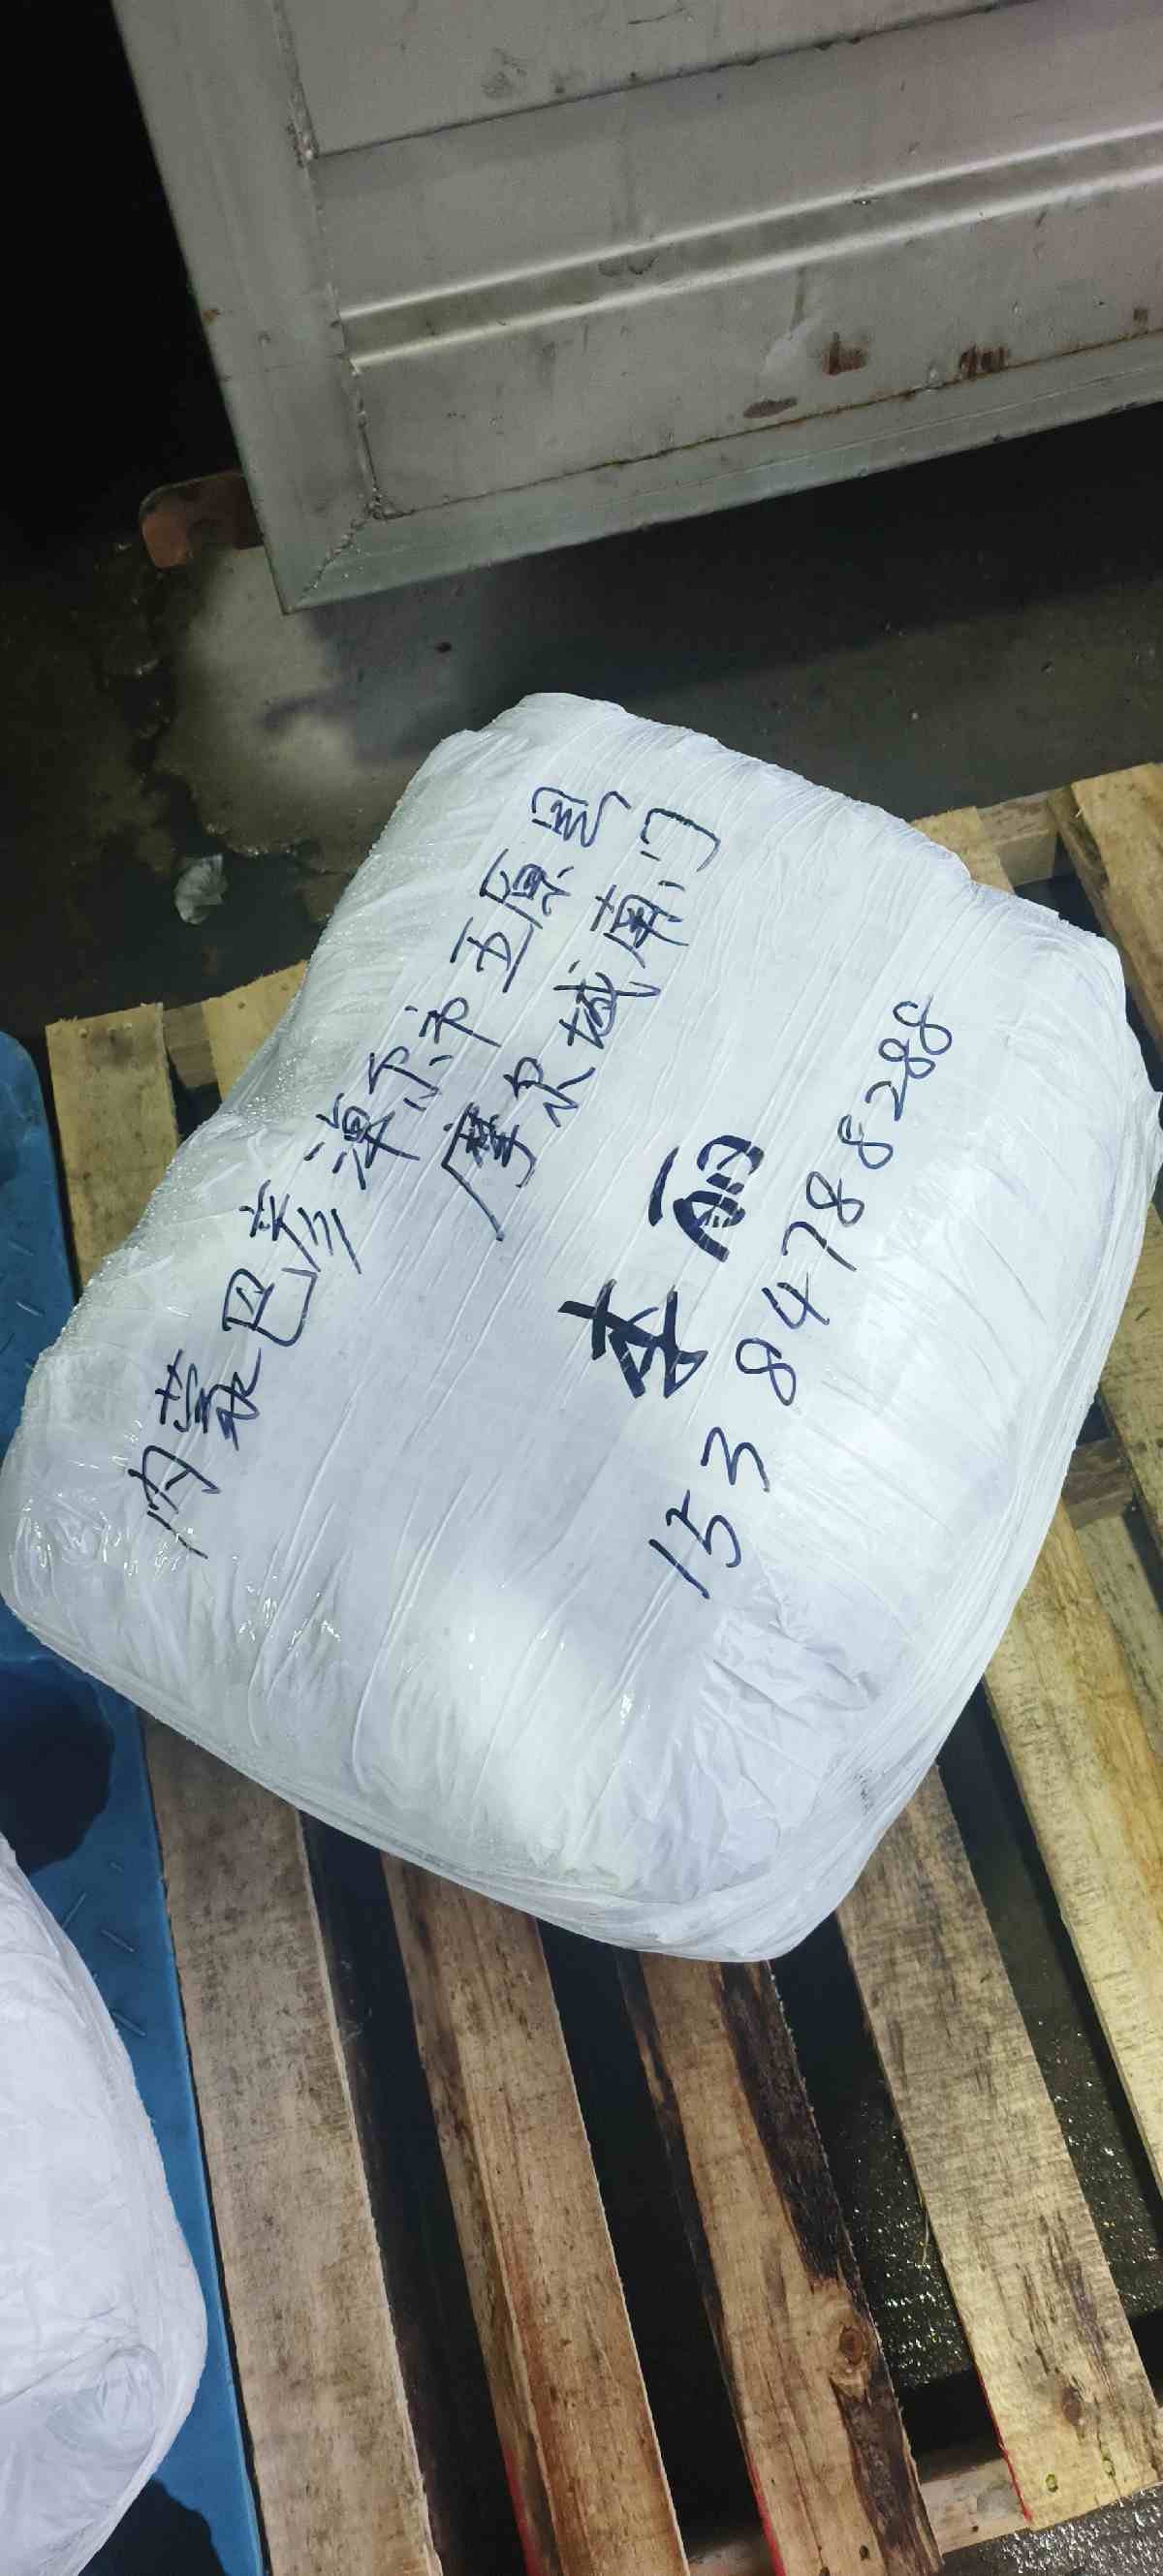 内蒙巴彦淖尔市五原县
摩尔城南门
李丽
15384788288